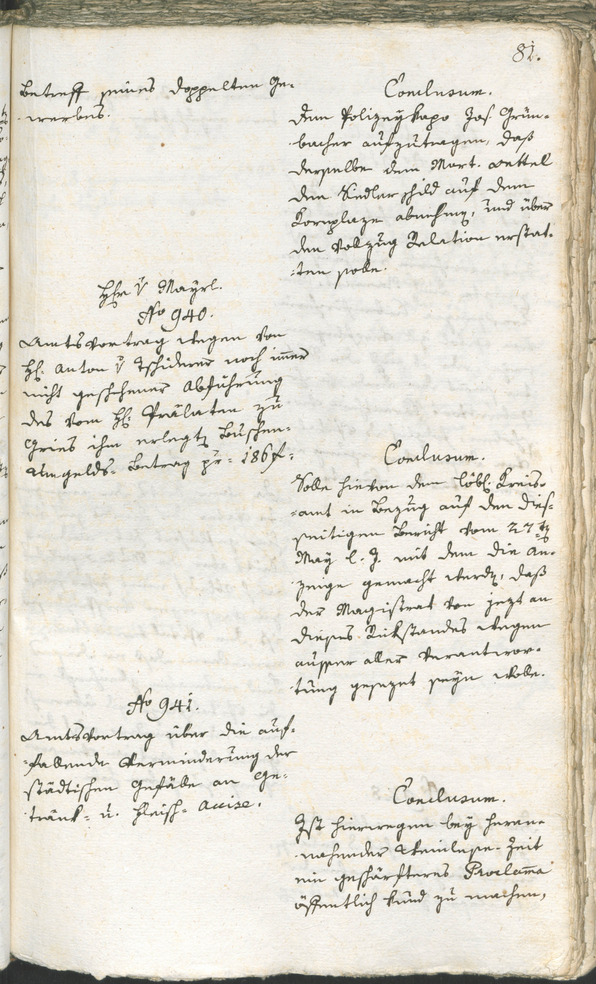 81.
Betreff seines doppelten Ge-
werbes.
Conclusum.
Dem Polizeykapo Jos. Grün-
bacher aufzutragen, daß
derselbe dem Mart. Oettel
den Siedlerschild auf dem
Kornplaze abnehme, und über
den Vollzug Relation erstat-
ten solle.
Hr. v Mayrl.
No 940.
Amtsvortrag wegen von
H. Anton v Tschiderer noch im̄er
nicht geschehener Abführung
des vom H. Prälaten zu
Gries ihm erlegten Buschen-
Umgelds-Betrag pr. 186 f.
Conclusum.
Solle hievon dem löbl. Kreis-
amt in Bezug auf den dies-
seitigen Bericht vom 27ten
May l. J. mit dem die An-
zeige gemacht werden, daß
der Magistrat von jezt an
dieses Rükstandes wegen
ausser aller Verantwor-
tung gesezt seyn wolle.
No 941.
Amtsvortrag über die auf-
fallende Verminderung der
städtischen Gefälle an Ge-
tränk- u. Fleisch-Accise.
Conclusum.
Ist hierwegen bey heran-
nahender Weinlese-Zeit
ein geschärfteres Proclama
öffentlich kund zu machen,